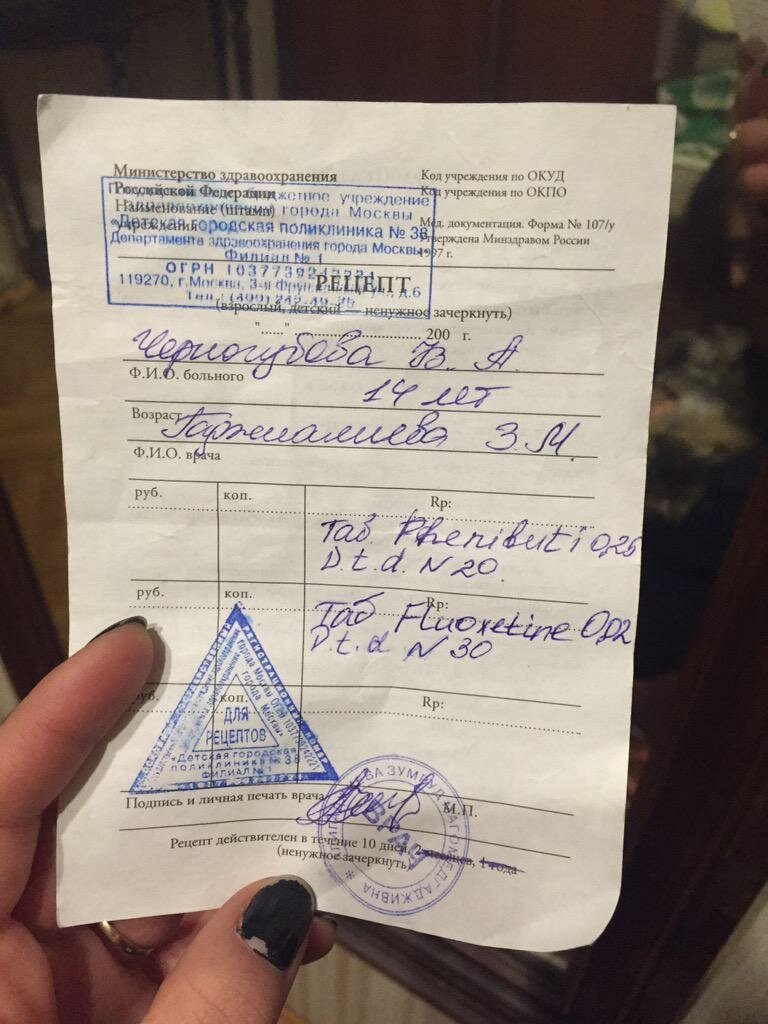 Министерство здравоохранения
Российской Федерации
Код учреждения по ОКУД
Код учреждения по ОКПО
Наименование (штамп)
учреждения
Мед. документация. Форма № 107/у
Утверждена Минздравом России
1997 г.
учреждение
города Москвы
«Детская городская поликлиника № 38
Департамента здравоохранения города Москвы»
Филиал № 1
ОГРН
119270, г. Москва, 3-я д.6
РЕЦЕПТ
(взрослый, детский — ненужное зачеркнуть)
"......" 200 г.
Черногубова В. А.
Ф.И.О. больного
14 лет
Возраст
З. М.
Ф.И.О. врача
руб. коп. Rp:
Таб. Phenibuti 0,25
D. t. d. N 20
руб. коп. Rp:
Таб Fluoxetine 0,02
D. t. d N 30
руб. коп. Rp:
ДЛЯ
РЕЦЕПТОВ
«Детская городская
поликлиника № 38
ФИЛИАЛ № 1
Подпись и личная печать врача М.П.
ВРАЧ
Рецепт действителен в течение 10 дней, 2 месяцев, 1 года
(ненужное зачеркнуть)